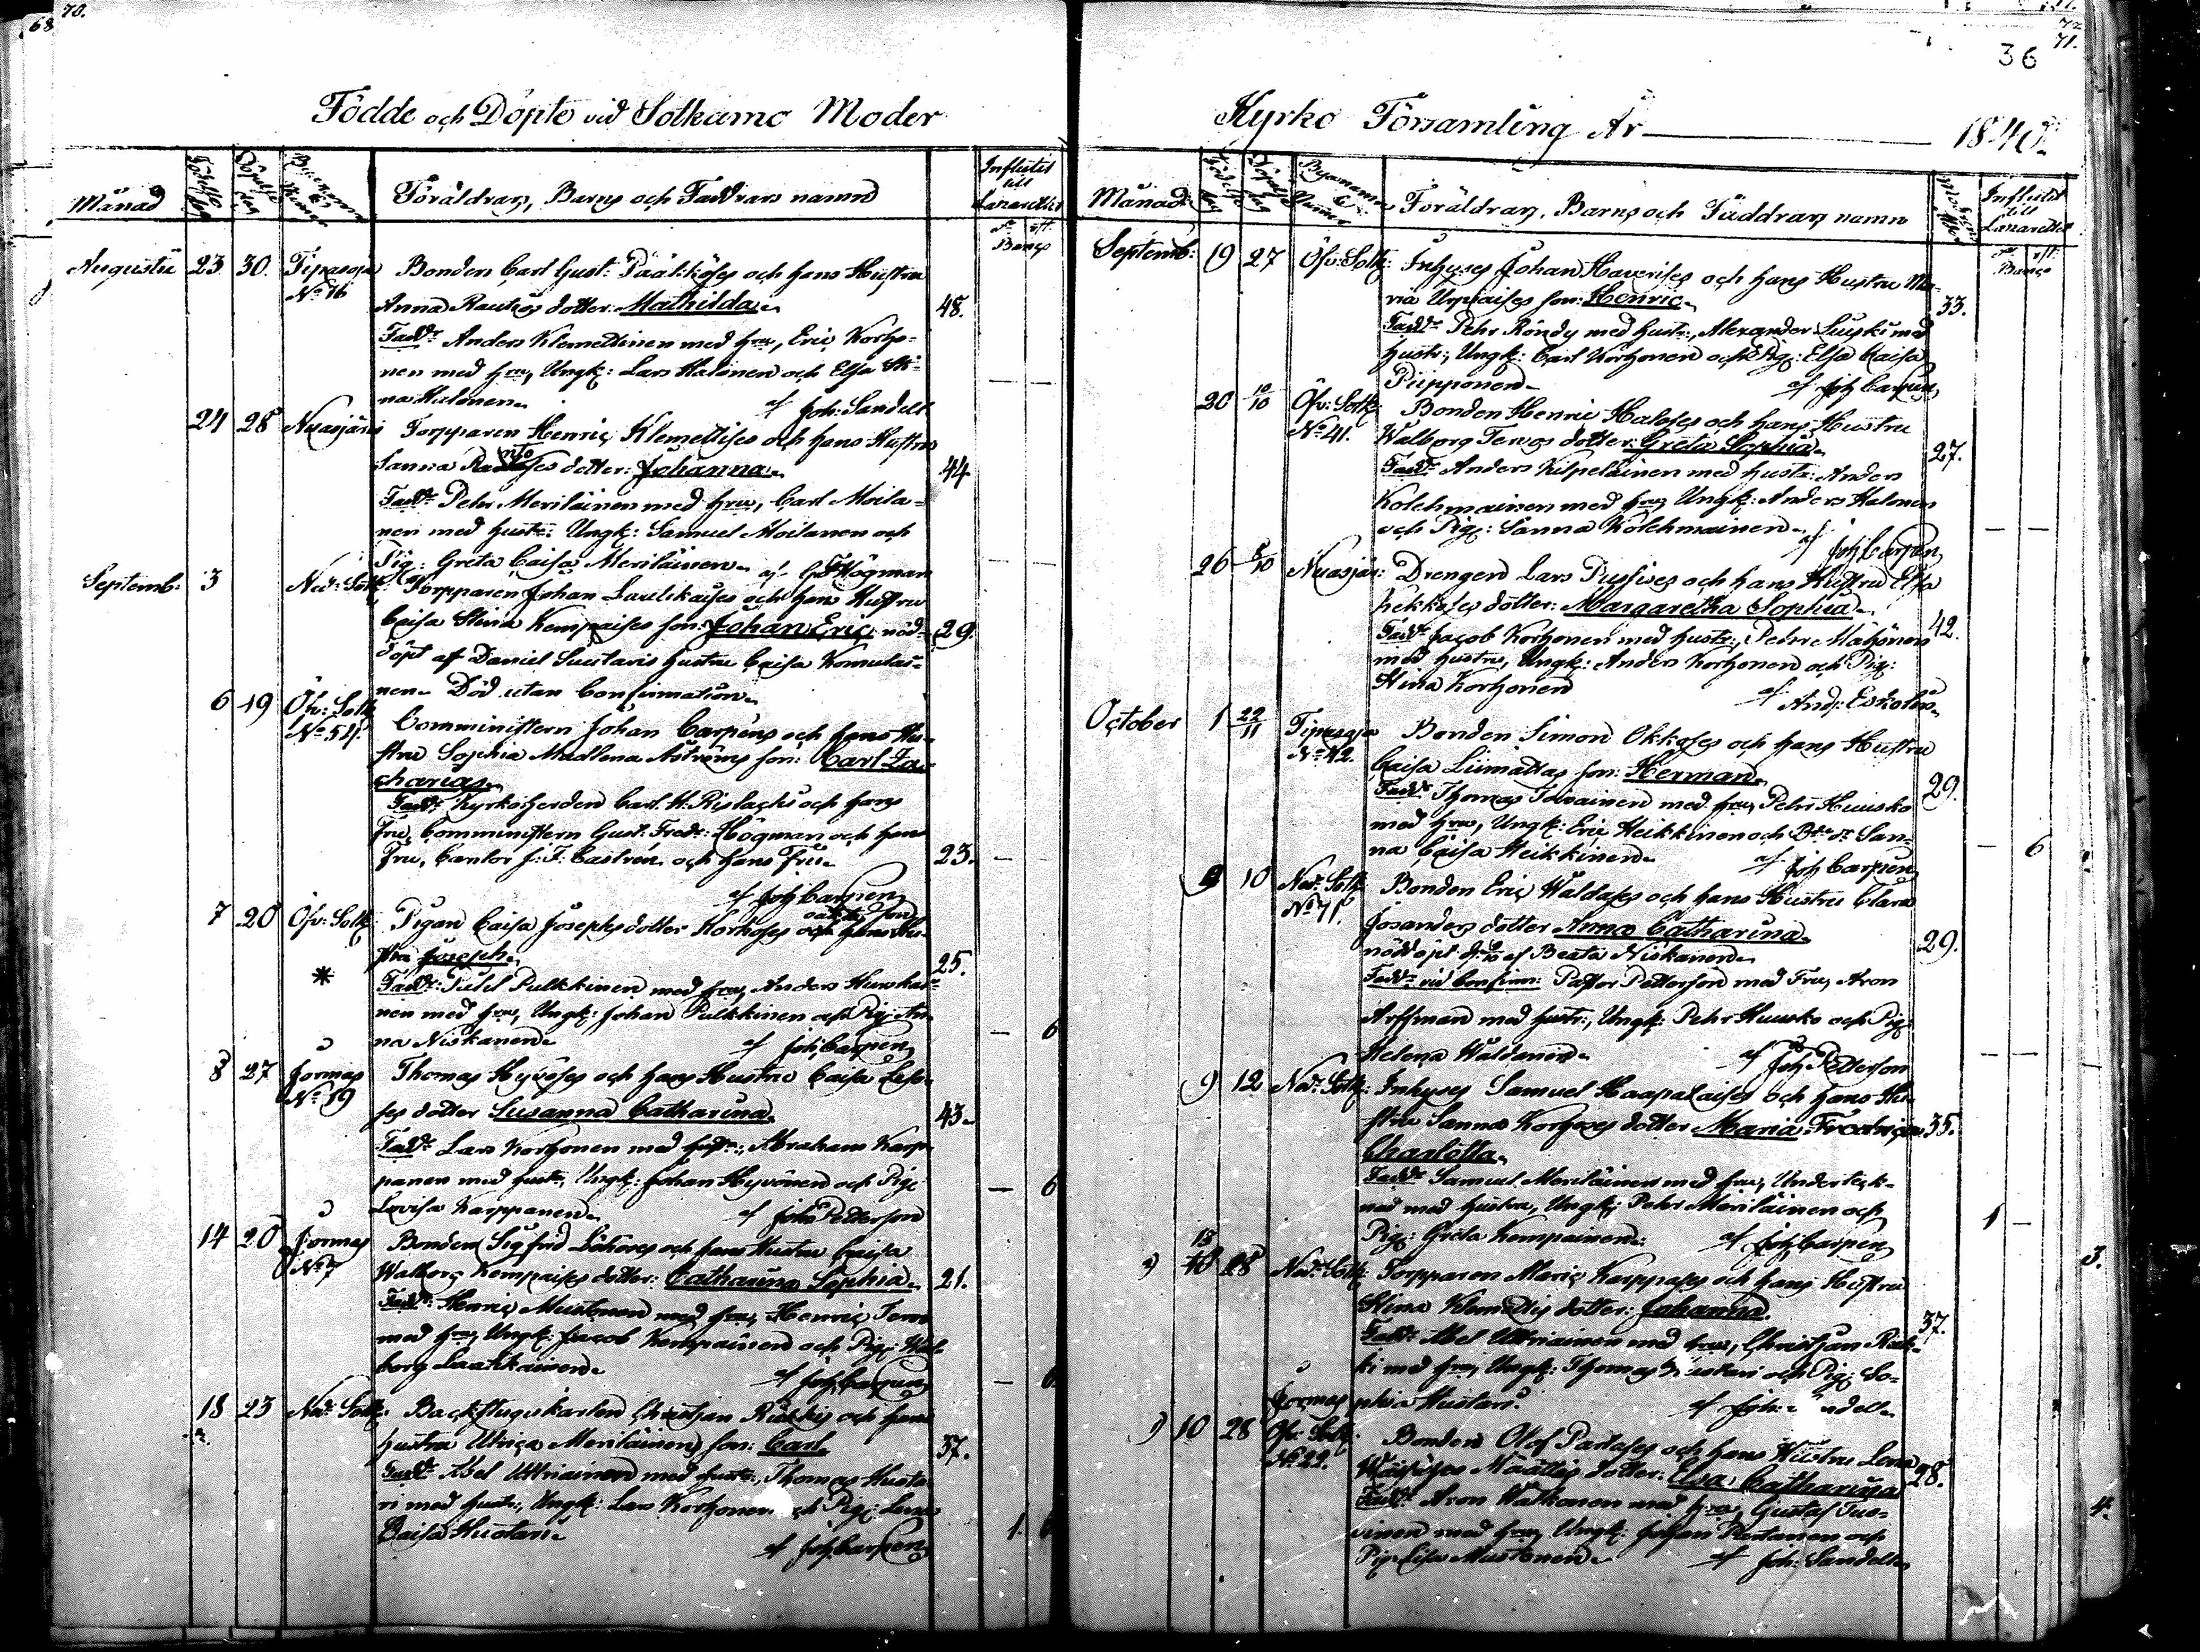 68 70.
Födde och Döpte vid Sotkamo Moder
Månad
Födelse dag
Döpelse dag
Byanamn & Numer
Föräldrars, Barns och Faddrars namn
Influtit till Lazarettet
Augusti 23 30. Tipasoja Bonden Carl Gust: Pääkköses och hans Hustru
No 16 Anna Rautios dotter: Mathilda. 48.
Faddr Anders Klemettinen med hru, Eric Korho-
nen med hru, Ungk: Lars Halonen och Elsa Sti-
na Halonen. af Joh: Sandell
24 28 Nuasjärvi Torpparen Henric Klemettises och hans Hustru
Sanna dotter: Johanna. 44
Faddr Petr Meriläinen med hru, Carl Moila-
nen med hustr: Ungk: Samuel Moilanen och
Pig: Greta Caisa Meriläinen. af G F Högman
Septemb: 3 Ned: Sotk: Torpparen Johan Laulikaises och hans Hustru
Caisa Stina Kempaises son: Johan Eric nöd- 29.
döpt af Daniel hustru Caisa Komulai-
nen. Död utan Confirmation.
6 19 Öfv: Sotk: Comministern Johan Carpéns och hans Hu-
No 54. stru Sophia Madlena Åströms son: Carl Za-
charias.
Faddr Kyrkoherden Carl H. och hans
Fru, Comministern Gust: Fredr: Högman och hans
Fru, Cantor J: F: Castrén och hans Fru. 23.
af Joh Carpén
7 20 Öfv: Sotk: Pigan Caisa Josephsdotter Korhoses oäkta son
Joseph. 25.
* Faddr: Pulkkinen med hru, Anders Huuskoi-
nen med hru, Ungk: Johan Pulkkinen och Pig: An-
na Niskanen. af Joh Carpén 6
8 27 Jormas Thomas Hyvöses och hans Hustru Caisa
No 19 dotter Susanna Catharina. 43.
Faddr Lars Korhonen med hustr:, Abraham Karp-
panen med hustr, Ungk: Johan Hyvönen och Pig:
Lovisa Karppanen. af Joh Petterson 6
14 20 Jormas Bonden Sigfrid och hans Hustru Caisa
No 7 Walborg Kempaises dotter: Catharina Sophia. 21.
Faddr: Henric Mustonen med hru, Henric
med hru, Ungk: Jacob Kempainen och Pig: Wal-
borg Laatikainen. af Joh Carpén 6
18 23 Ned: Sotk: Backstugukarlen Christjan och hans
hustru Ulrica Meriläinen son: Carl 37.
Faddr Abel Ukkonainen med hustr:, Thomas Husta-
ri med hustr:, Ungk: Lars Korhonen och Pig: Lena
Caisa Hustari. af Joh Carpén 1. 6
36
71.
Kyrko Församling År 1840.
Månad
Födelse dag
Byanamn & Numer
Föräldrars, Barns och Faddrars namn
Influtit till Lazarettet
Septemb: 19 27 Öfv: Sotk: Inhyses Johan Haverises och hans Hustru Ma-
ria son: Henric. 33.
Faddr Pehr Röndy med hustr:, Alexander med
hustr:, Ungk: Carl Korhonen och Pig: Elsa Caisa
Piipponen. af Joh Carpén
20 10/10 Öfv: Sotk: Bonden Henric Haloses och hans Hustru
No 41. Walborg Tervos dotter: Greta Sophia. 27.
Faddr Anders Kilpeläinen med hustr: Anders
Kolehmainen med hru, Ungk: Anders Halonen
och Pig: Sanna Kolehmainen. af Joh Carpén
26 8/10 Nuasjär: Drengen Lars och hans Hustru Elsa
dotter: Margaretha Sophia. 42.
Faddr Jacob Korhonen med hustr:, Pehr Mähönen
med hustru, Ungk: Anders Korhonen och Pig:
Stina Korhonen af And: Eskolin
October 1 22/11 Tipasoja Bonden Simon Okkoses och hans Hustru
No 42. Caisa Liimattas son: Herman. 29.
Faddr Thomas Toivainen med hru, Pehr Huusko
med hru, Ungk: Eric Heikkinen och San-
na Caisa Heikkinen. af Joh Carpén 6
9 10 Ned: Sotk: Bonden Eric Wäldases och hans Hustru Clara
No 71. Josanders dotter Anna Catharina. 29.
nöddöpt af Beata Niskanen.
Faddr vid Confirm: Pastor Petterson med Fru, Aron
Arffman med hustr:, Ungk: Pehr Huusko och Pig:
Helena Wäldanen. af Joh Petterson
9 12 Ned: Sotk: Inhyses Samuel Haapalaises och hans Hu-
stru Sanna Korhoses dotter Maria Fredrica 35.
Charlotta.
Faddr Samuel Meriläinen med hru, Underteck-
nad med hustru, Ungk: Pehr Meriläinen och
Pig: Greta Kempainen. af Joh Carpén 1
3.
13 28 Ned: Sotk: Torpparen Karppases och hans Hustru
Stina Klemettis dotter: Johanna. 37.
Faddr Abel med hru, Christjan
med hru, Ungk: Thomas Hustari och Pig: So-
phia Hustari. af Joh:
Jormas
10 28 Öfv: Sotk: Bonden Olof Partases och hans Hustru Lena
No 22. dotter: Eva Catharina 28.
Faddr Aron Watkonen med hru, Gustaf
med hru, Ungk: Johan och
Pig: Lisa Mustonen. af Joh: Sandell
4.